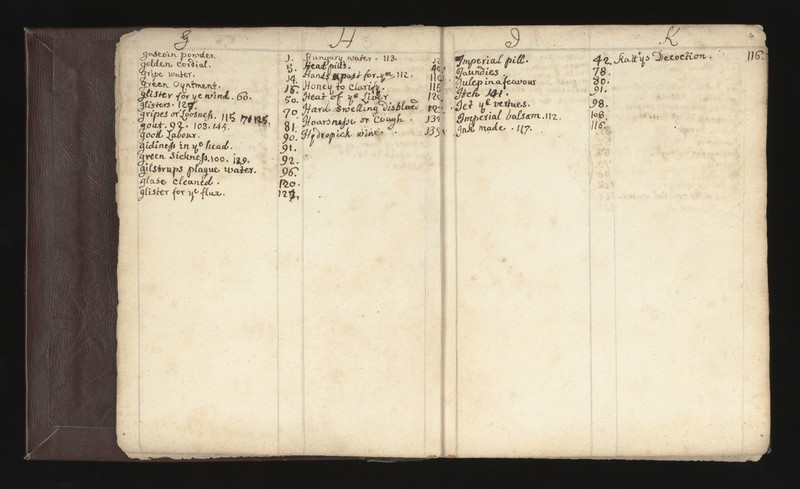 G
Gascoin powder. 1.
Golden Cordial. 5.
Gripe water. 14.
Green Oyntment. 16.
Glister for ye wind. 60. 50.
Glisters. 127. 70
gripes or Loosness. 115 171 125. 81
gout. 92. 103. 145. 90.
good Labour. 91.
gidiness in ye head. 92.
green Sickness. 100. 129. 96.
gilstrups plague water. 120.
glase Cleaned.
glister for ye flux.
H
Hungary water. 113.
Head pills.
Hands a post for ym. 112.
Honey to Clarify. 115
Heat of ye Liver
Hard Swelling disolued
Hoarsnesse or Cough.
Hydropick wine.
I
Imperial pill. 42
Jaundies. 78.
Julep in a feavour 80.
Itch. 141. 91.
Jet ye vertues. 98.
Imperial balsom. 112. 108.
Ink made. 117. 116.
K
Katt'ys Decoction. 116.